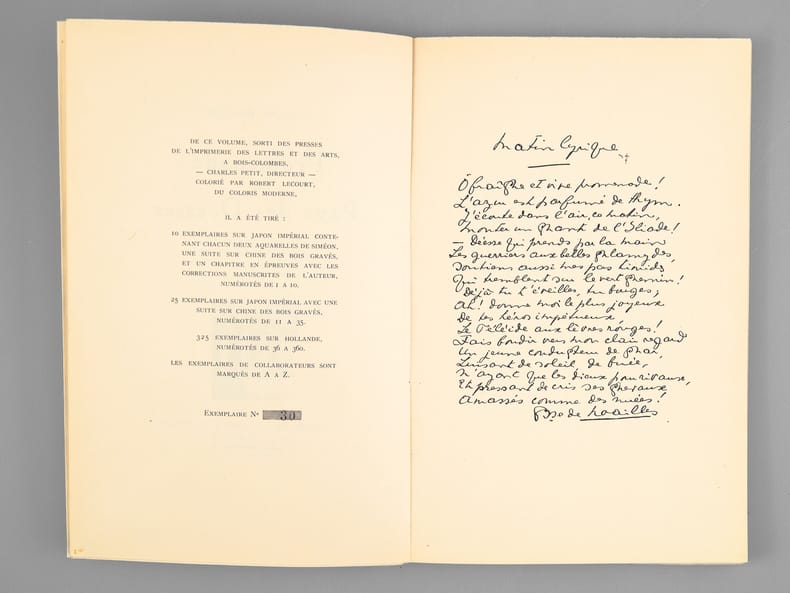 DE CE VOLUME, SORTI DES PRESSES
DE L'IMPRIMERIE DES LETTRES ET DES ARTS,
A BOIS-COLOMBES,
— CHARLES PETIT, DIRECTEUR —
COLORIÉ PAR ROBERT LECOURT,
DU COLORIS MODERNE,
IL A ÉTÉ TIRÉ :
10 EXEMPLAIRES SUR JAPON IMPÉRIAL CONTE-
NANT CHACUN DEUX AQUARELLES DE SIMÉON,
UNE SUITE SUR CHINE DES BOIS GRAVÉS,
ET UN CHAPITRE EN ÉPREUVES AVEC LES
CORRECTIONS MANUSCRITES DE L'AUTEUR,
NUMÉROTÉS DE 1 A 10.
25 EXEMPLAIRES SUR JAPON IMPÉRIAL AVEC UNE
SUITE SUR CHINE DES BOIS GRAVÉS,
NUMÉROTÉS DE 11 A 35.
325 EXEMPLAIRES SUR HOLLANDE,
NUMÉROTÉS DE 36 A 360.
LES EXEMPLAIRES DE COLLABORATEURS SONT
MARQUÉS DE A A Z.
EXEMPLAIRE No 30
Matin lyrique
Ô fraîche et vive promenade !
L'azur est parfumé de thym.
J'écoute dans l'air, ce matin,
Monter un chant de l'Iliade !
— Déesse qui prends par la main
Les guerriers aux belles chlamydes,
Soutiens aussi mes pas timides
Qui tremblent sur le vert chemin !
Déjà tu t'éveilles, tu bouges,
Ah ! donne moi le plus joyeux
De tes héros impétueux
Le Péléide aux lèvres rouges !
Fais bondir vers mon clair regard
Un jeune conducteur de char,
Luisant de soleil, de buée,
N'ayant que les dieux pour rivaux,
Et pressant de cris ses chevaux,
Amassés comme des nuées !
de Noailles